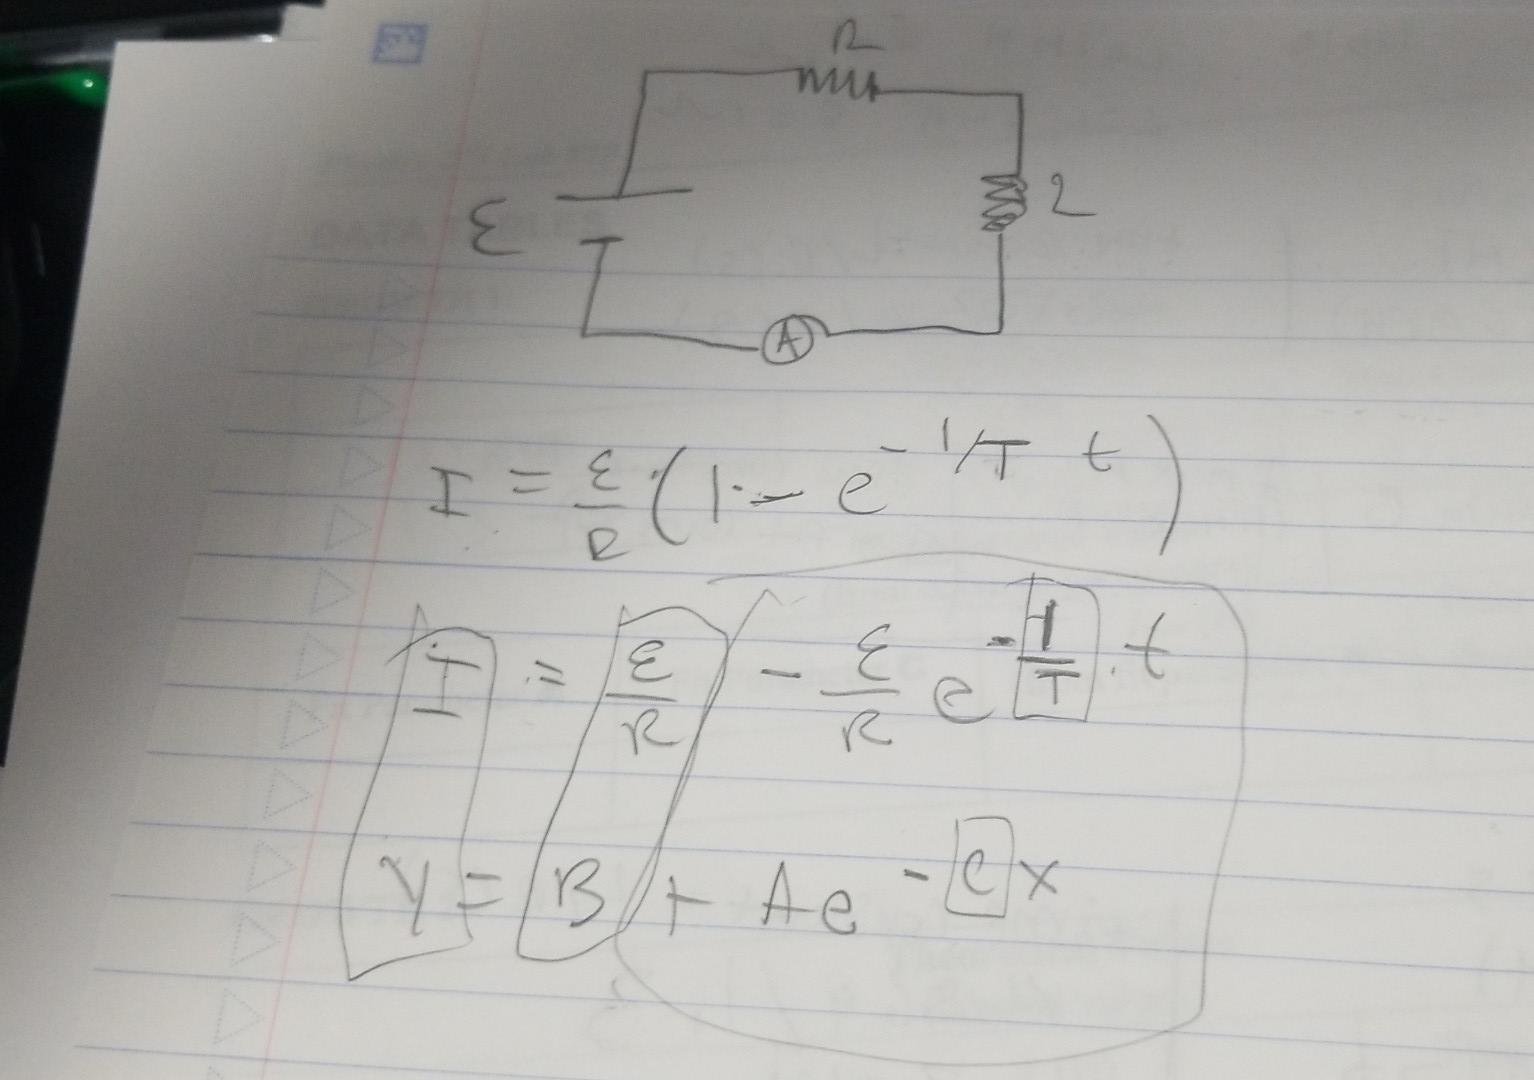 R
ε
L
A
I = ε/R (1 - e^{-1/T t})
I = ε/R - ε/R e^{-1/T . t}
Y = B + Ae^{-Cx}